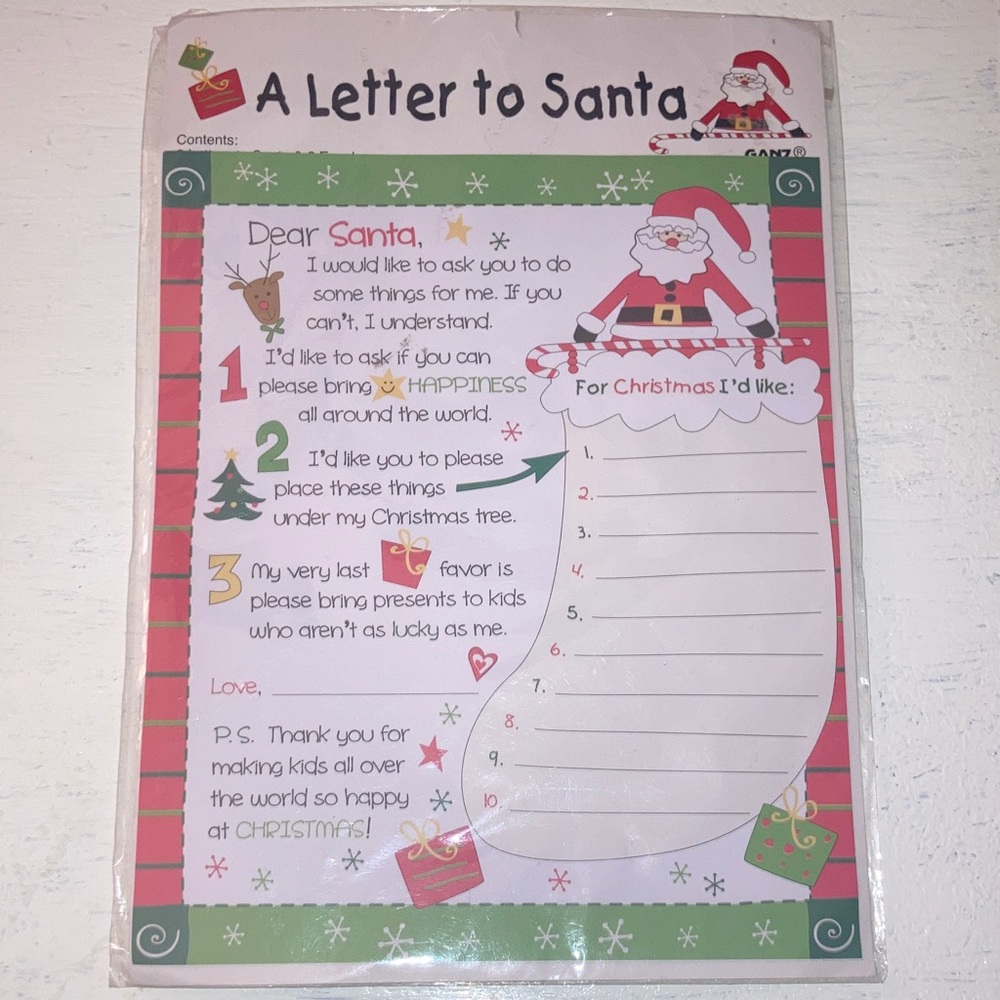 A Letter to Santa
Contents:
GANZ®
Dear Santa,
I would like to ask you to do
some things for me. If you
can't, I understand.
1 I'd like to ask if you can
please bring HAPPINESS
all around the world.
2 I'd like you to please
place these things
under my Christmas tree.
3 My very last favor is
please bring presents to kids
who aren't as lucky as me.
Love,
P.S. Thank you for
making kids all over
the world so happy
at CHRISTMAS!
For Christmas I'd like:
1.
2.
3.
4.
5.
6.
7.
8.
9.
10.